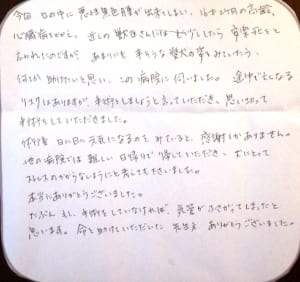 今回 口の中に 悪性黒色腫が出来てしまい、16才2ヶ月の高齢、
心臓病もあり、近くの獣医さんにはもう少ししたら 安楽死をと
言われたのですが、あまりにも 辛そうな愛犬の姿をみていたら、
何とか助けたいと思い、この病院に伺いました。途中で亡くなる
リスクはありますが、手術をしましょうと言っていただき、思い切って
手術をしていただきました。
術後 日に日に元気になるのを みていると、感謝しかありません。
他の病院では難しい日帰りで帰していただき、犬にとって
ストレスのかからないようにと考えても下さいました。
本当にありがとうございました。
たぶん もし、手術をしていなければ、気管がふさがってしまったと
思います。命を助けていただいた 先生方 ありがとうございました。